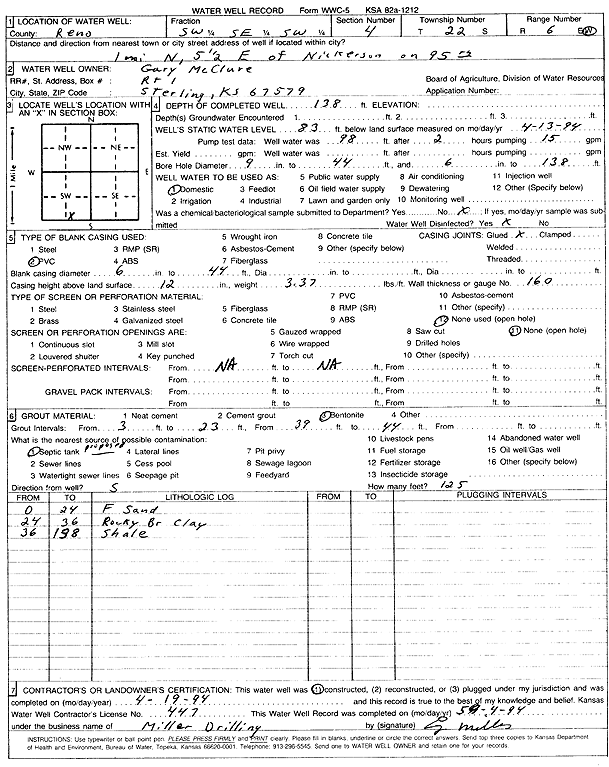 WATER WELL RECORD Form WWC-5 KSA 82a-1212
1 LOCATION OF WATER WELL: Fraction Section Number Township Number Range Number
County: Reno SW ¼ SE ¼ SW ¼ 4 T 22 S R 6 E/W
Distance and direction from nearest town or city street address of well if located within city?
1 mi N, 5 1/2 E of Nickerson on 95 th
2 WATER WELL OWNER: Gary McClure
RR#, St. Address, Box # : Rt 1 Board of Agriculture, Division of Water Resources
City, State, ZIP Code : Sterling, KS 67579 Application Number:
3 LOCATE WELL'S LOCATION WITH AN "X" IN SECTION BOX:
N
NW NE
W E
SW SE
X
S
1 Mile
4 DEPTH OF COMPLETED WELL 138 ft. ELEVATION:
Depth(s) Groundwater Encountered 1. ft. 2. ft. 3. ft.
WELL'S STATIC WATER LEVEL 83 ft. below land surface measured on mo/day/yr 4-13-94
Pump test data: Well water was 98 ft. after 2 hours pumping 15 gpm
Est. Yield gpm: Well water was ft. after hours pumping gpm
Bore Hole Diameter 9 in. to 44 ft., and 6 in. to 138 ft.
WELL WATER TO BE USED AS: 5 Public water supply 8 Air conditioning 11 Injection well
1 Domestic 3 Feedlot 6 Oil field water supply 9 Dewatering 12 Other (Specify below)
2 Irrigation 4 Industrial 7 Lawn and garden only 10 Monitoring well
Was a chemical/bacteriological sample submitted to Department? Yes No X If yes, mo/day/yr sample was sub-
mitted Water Well Disinfected? Yes X No
5 TYPE OF BLANK CASING USED: 5 Wrought iron 8 Concrete tile CASING JOINTS: Glued X Clamped
1 Steel 3 RMP (SR) 6 Asbestos-Cement 9 Other (specify below) Welded
2 PVC 4 ABS 7 Fiberglass Threaded
Blank casing diameter 6 in to 44 ft., Dia in. to ft., Dia in. to ft.
Casing height above land surface 12 in., weight 3.37 lbs./ft. Wall thickness or gauge No. 160
TYPE OF SCREEN OR PERFORATION MATERIAL: 7 PVC 10 Asbestos-cement
1 Steel 3 Stainless steel 5 Fiberglass 8 RMP (SR) 11 Other (specify)
2 Brass 4 Galvanized steel 6 Concrete tile 9 ABS 12 None used (open hole)
SCREEN OR PERFORATION OPENINGS ARE: 5 Gauzed wrapped 8 Saw cut 11 None (open hole)
1 Continuous slot 3 Mill slot 6 Wire wrapped 9 Drilled holes
2 Louvered shutter 4 Key punched 7 Torch cut 10 Other (specify)
SCREEN-PERFORATED INTERVALS: From NA ft. to NA ft., From ft. to ft.
From ft. to ft., From ft. to ft.
GRAVEL PACK INTERVALS: From ft. to ft., From ft. to ft.
From ft. to ft., From ft. to ft.
6 GROUT MATERIAL: 1 Neat cement 2 Cement grout 3 Bentonite 4 Other
Grout Intervals: From 3 ft. to 23 ft., From 39 ft. to 44 ft., From ft. to ft.
What is the nearest source of possible contamination: 10 Livestock pens 14 Abandoned water well
1 Septic tank proposed 4 Lateral lines 7 Pit privy 11 Fuel storage 15 Oil well/Gas well
2 Sewer lines 5 Cess pool 8 Sewage lagoon 12 Fertilizer storage 16 Other (specify below)
3 Watertight sewer lines 6 Seepage pit 9 Feedyard 13 Insecticide storage
Direction from well? S How many feet? 125
FROM TO LITHOLOGIC LOG FROM TO PLUGGING INTERVALS
0 24 F Sand
24 36 Rocky Br Clay
36 138 Shale
7 CONTRACTOR'S OR LANDOWNER'S CERTIFICATION: This water well was (1) constructed, (2) reconstructed, or (3) plugged under my jurisdiction and was
completed on (mo/day/year) 4-19-94 and this record is true to the best of my knowledge and belief. Kansas
Water Well Contractor's License No. 447 This Water Well Record was completed on (mo/day/yr)
under the business name of Miller Drilling by (signature)
INSTRUCTIONS: Use typewriter or ball point pen. PLEASE PRESS FIRMLY and PRINT clearly. Please fill in blanks, underline or circle the correct answers. Send top three copies to Kansas Department
of Health and Environment, Bureau of Water, Topeka, Kansas 66620-0001. Telephone: 913-296-5545. Send one to WATER WELL OWNER and retain one for your records.